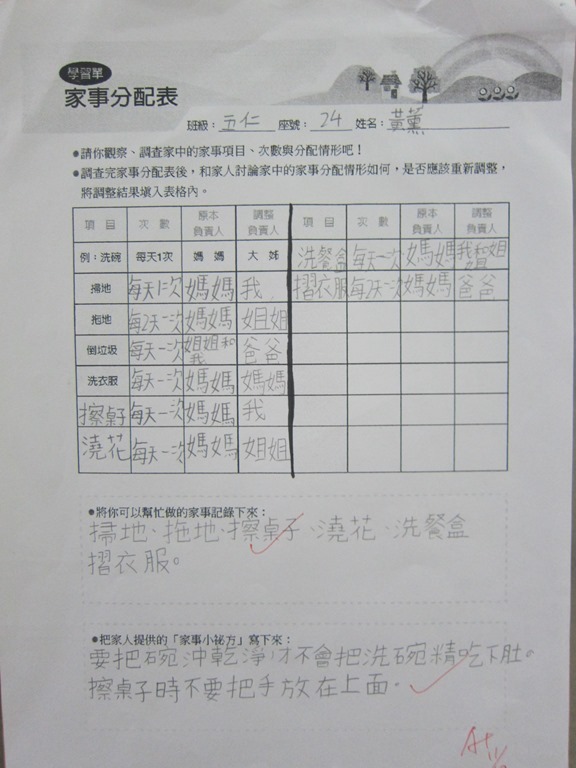 學習單
家事分配表
班級：五仁 座號：24 姓名：黃薰
●請你觀察、調查家中的家事項目、次數與分配情形吧！
●調查完家事分配表後，和家人討論家中的家事分配情形如何，是否應該重新調整，
將調整結果填入表格內。
項目 次數 原本負責人 調整負責人 項目 次數 原本負責人 調整負責人
例：洗碗 每天1次 媽媽 大姊 洗餐盒 每天一次 媽媽 我和姐姐
掃地 每天1次 媽媽 我 摺衣服 每2天一次 媽媽 爸爸
拖地 每2天一次 媽媽 姐姐
倒垃圾 每天一次 姐姐和我 爸爸
洗衣服 每天一次 媽媽 媽媽
擦桌子 每天一次 媽媽 我
澆花 每天一次 媽媽 姐姐
●將你可以幫忙做的家事記錄下來：
掃地、拖地、擦桌子、澆花、洗餐盒
摺衣服。
●把家人提供的「家事小祕方」寫下來：
要把碗沖乾淨才不會把洗碗精吃下肚。
擦桌子時不要把手放在上面。
A+